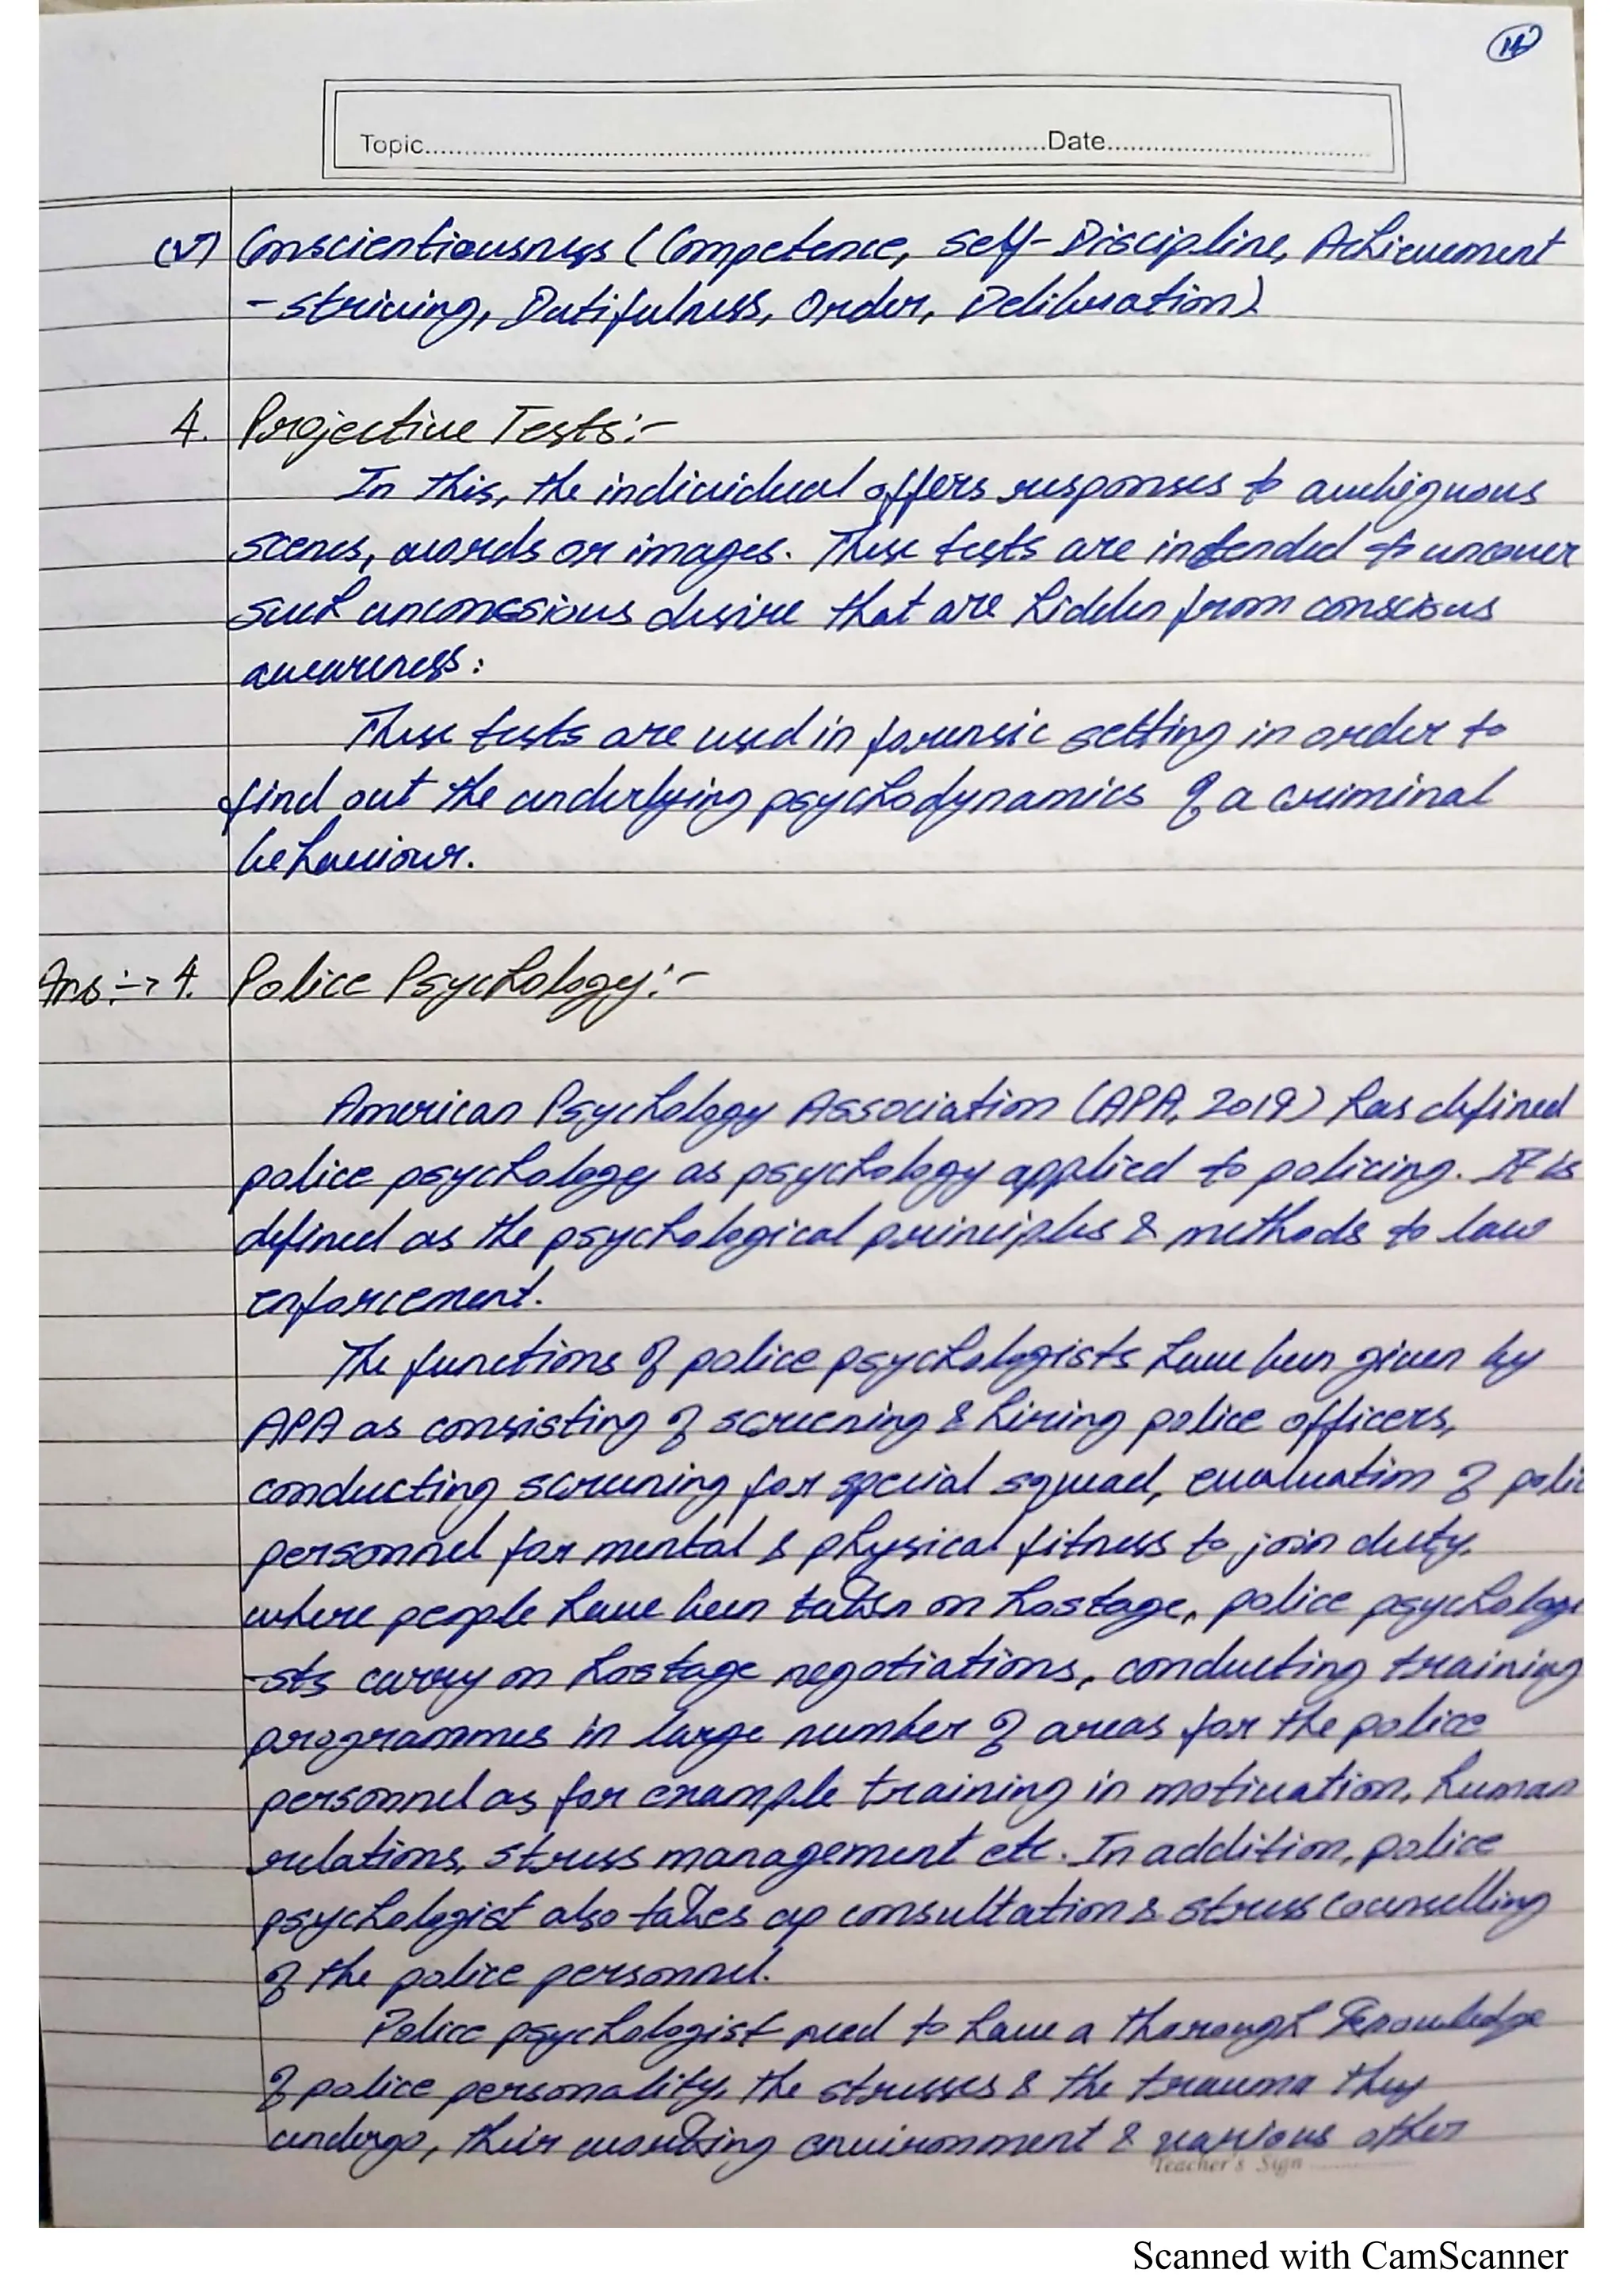 14
Topic.....Date.....
(v) Conscientiousness (Competence, Self-Discipline, Achievement
-striving, Dutifulness, Order, Deliberation)
4. Projective Tests:-
In this, the individual offers responses to ambiguous
scenes, words or images. These tests are intended to uncover
such unconssious desire that are hidden from conscious
awareness:
These tests are used in forensic setting in order to
find out the underlying psychodynamics of a criminal
behaviour.
Ans:-> 4. Police Psychology:-
American Psychology Association (APA, 2019) has defined
police psychology as psychology applied to policing. It is
defined as the psychological principles & methods to law
enforcement.
The functions of police psychologists have been given by
APA as consisting of screening & hiring police officers,
conducting screening for special squad, evaluation of polic
personnel for mental & physical fitness to join duty.
where people have been taken on hostage, police psychologi
-sts carry on hostage negotiations, conducting training
programmes in large number of areas for the police
personnel as for example training in motivation, human
relations, stress management etc. In addition, police
psychologist also takes up consultation & stress counselling
of the police personnel.
Police psychologist need to have a thorough knowledge
of police personality, the stresses & the trauma they
undergo, their working environment & various other
Teacher's Sign ..........
Scanned with CamScanner